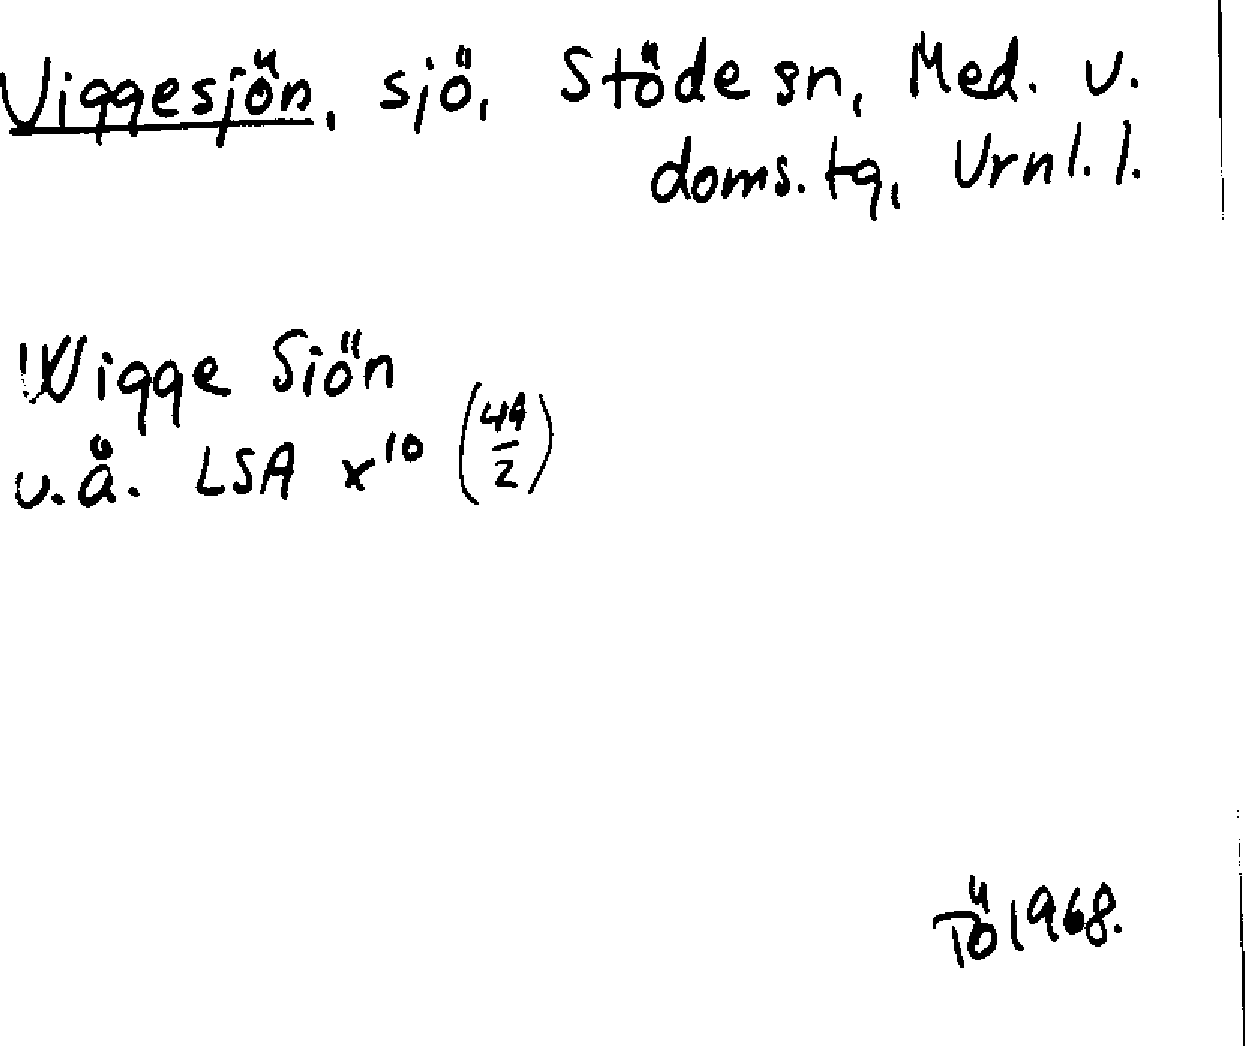 Viggesjön, sjö, Stöde sn, Med. v.
doms. tg, Vrnl. l.
Wigge Siön
u.å. LSA x¹⁰ (49/2)
TÖ 1968.